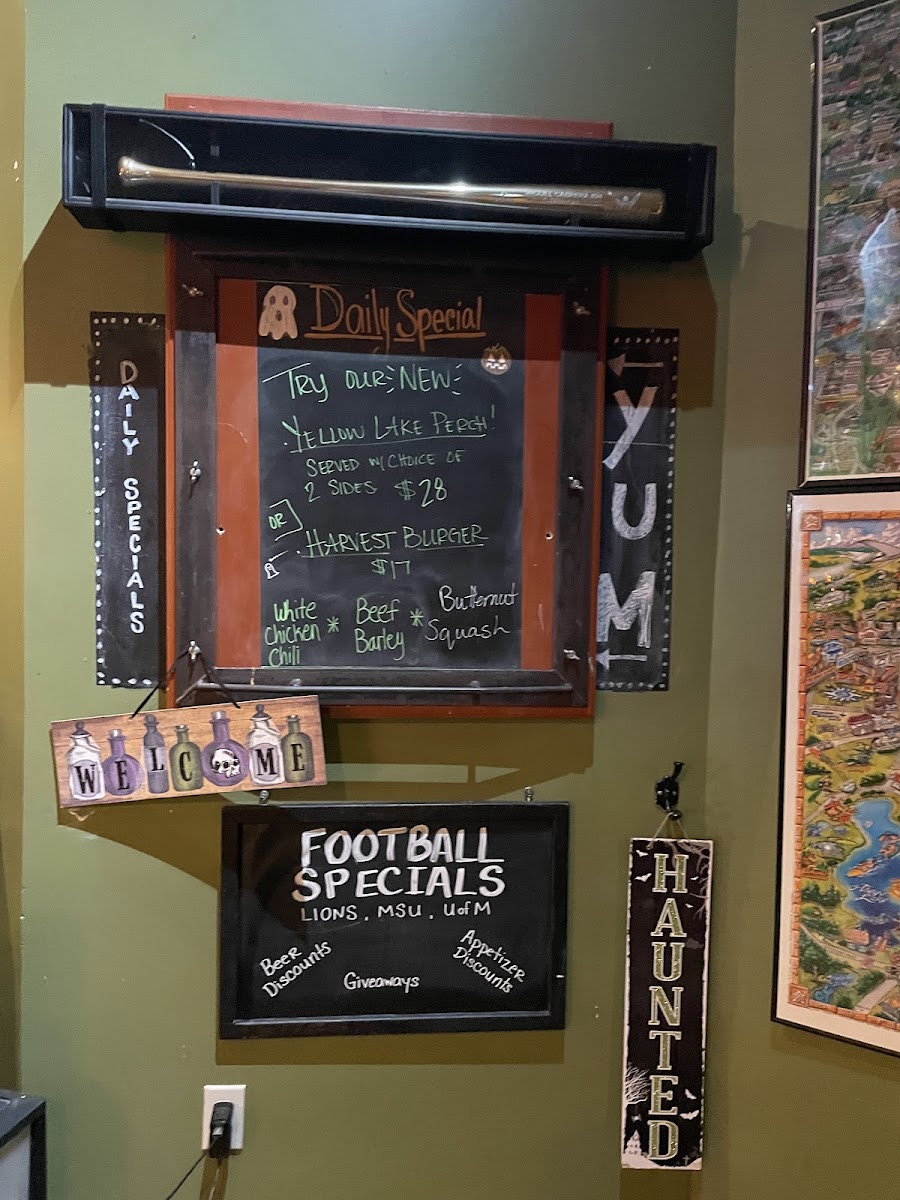 MIGUEL CABRERA
Daily Special
TRY OUR NEW
YELLOW LAKE PERCH!
SERVED W/ CHOICE OF
2 SIDES $28
OR
HARVEST BURGER
$17
White Chicken Chili * Beef Barley * Butternut Squash
DAILY SPECIALS
YUM
WELCOME
FOOTBALL
SPECIALS
LIONS, MSU, UofM
Beer
Discounts
Giveaways
Appetizer
Discounts
HAUNTED